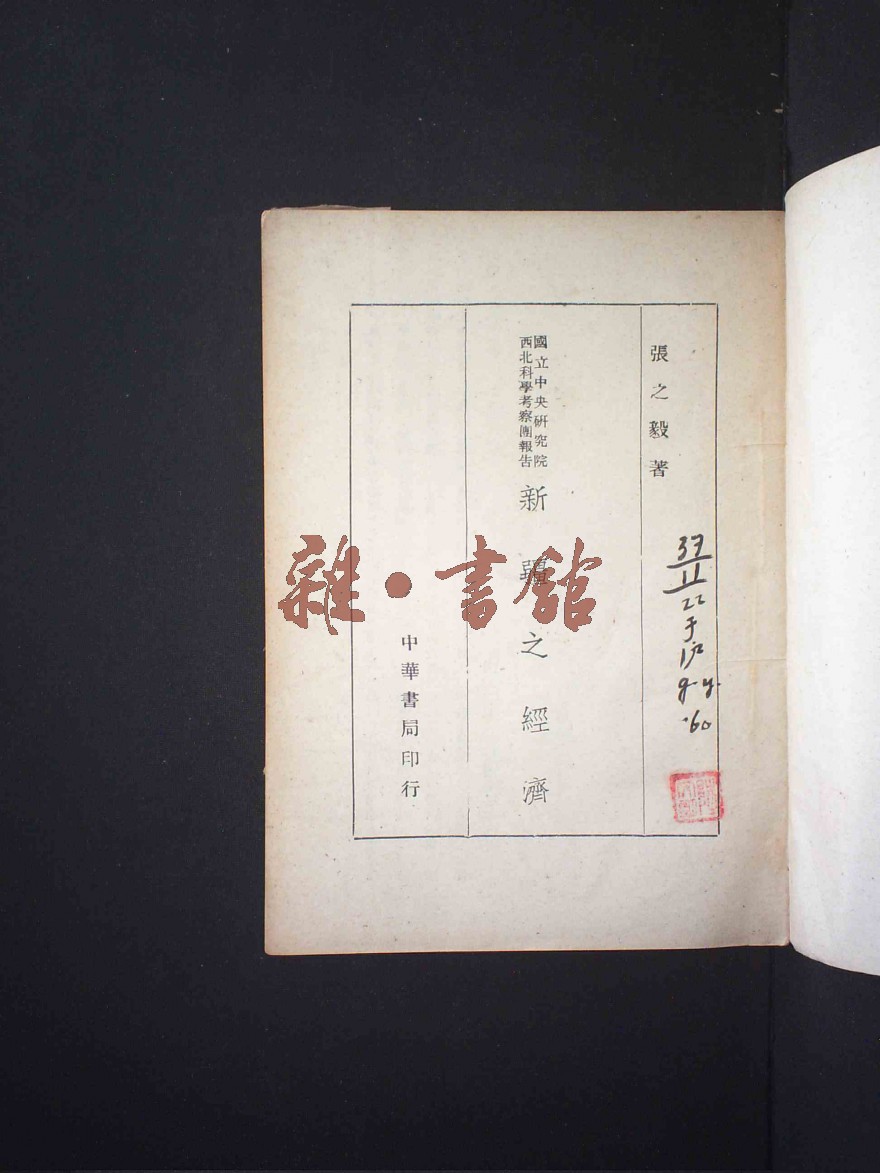 張之毅著
國立中央研究院
西北科學考察團報告
新疆之經濟
中華書局印行
雜·書館
37
11
22
于沪
g.y.
'60